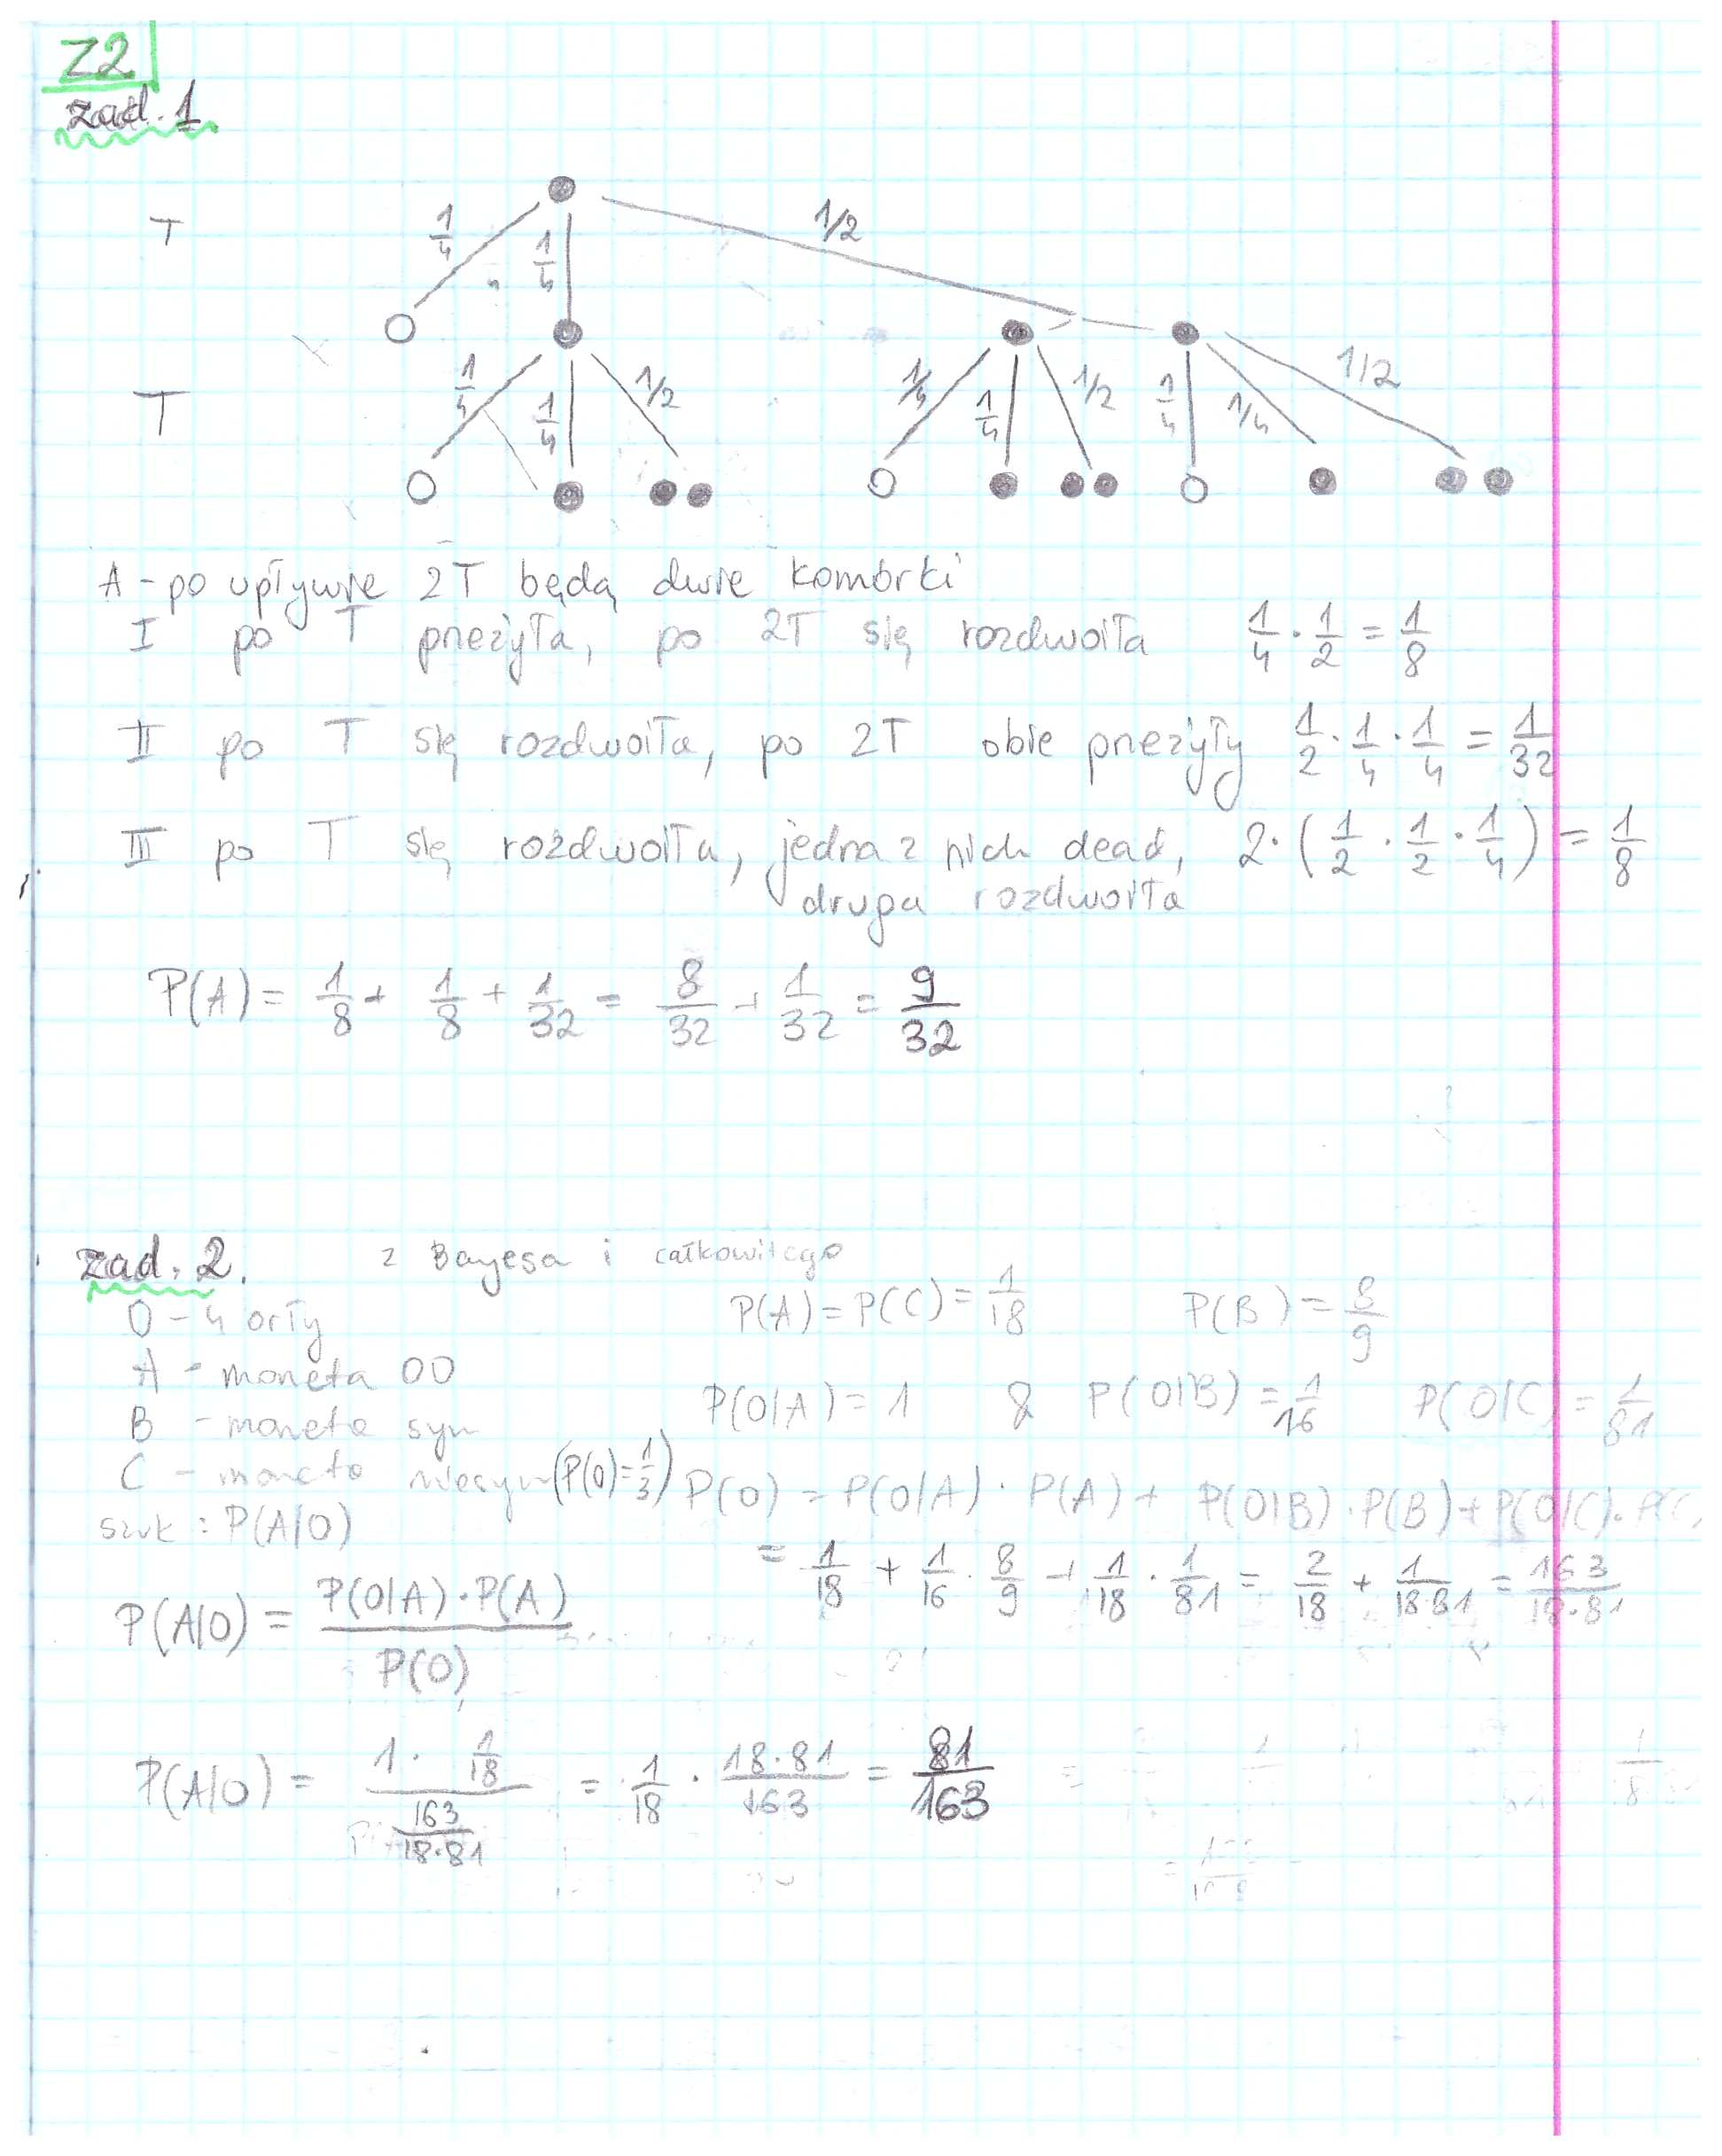 Z2
zad. 1
T 1/4 1/4 1/2
T 1/4 1/4 1/2 1/4 1/4 1/2 1/4 1/4 1/2
A - po upływie 2T będą dwie komórki
I po T przeżyła, po 2T się rozdwoiła 1/4 · 1/2 = 1/8
II po T się rozdwoiła, po 2T obie przeżyły 1/2 · 1/4 · 1/4 = 1/32
III po T się rozdwoiła, jedna z nich dead, 2·(1/2 · 1/2 · 1/4) = 1/8
druga rozdwoiła
P(A) = 1/8 + 1/8 + 1/32 = 8/32 + 1/32 = 9/32
zad. 2. z Bayesa i całkowitego
O - 4 orły P(A) = P(C) = 1/18 P(B) = 8/9
A - moneta OO
B - moneta sym P(O|A) = 1 & P(O|B) = 1/16 P(O|C) = 1/81
C - moneta niesym (P(O) = 1/3) P(O) = P(O|A) · P(A) + P(O|B) · P(B) + P(O|C) · P(C)
szuk : P(A|O)
= 1/18 + 1/16 · 8/9 + 1/18 · 1/81 = 2/18 + 1/18·81 = 163/18·81
P(A|O) = P(O|A) · P(A) / P(O)
P(A|O) = 1 · 1/18 / 163/18·81 = 1/18 · 18·81/163 = 81/163